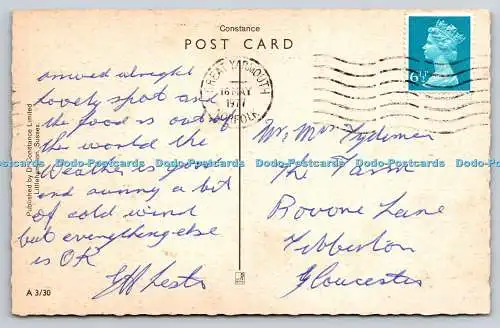 Constance
POST CARD
GREAT YARMOUTH
16 MAY
1977
NORFOLK
6½P
arrived alright
lovely spot and
the food is out of
the world the
Weather is good
and sunny a bit
of cold wind
but everything else
is OK
Mr, Mrs Tydeman
The Farm
Rovone Lane
Tibberton
Gloucester
Published by D. Constance Limited
Littlehampton, Sussex.
A 3/30
Dodo-Postcards Dodo-Postcards Dodo-Postcards Dodo-Postcards Dodo-Postcards